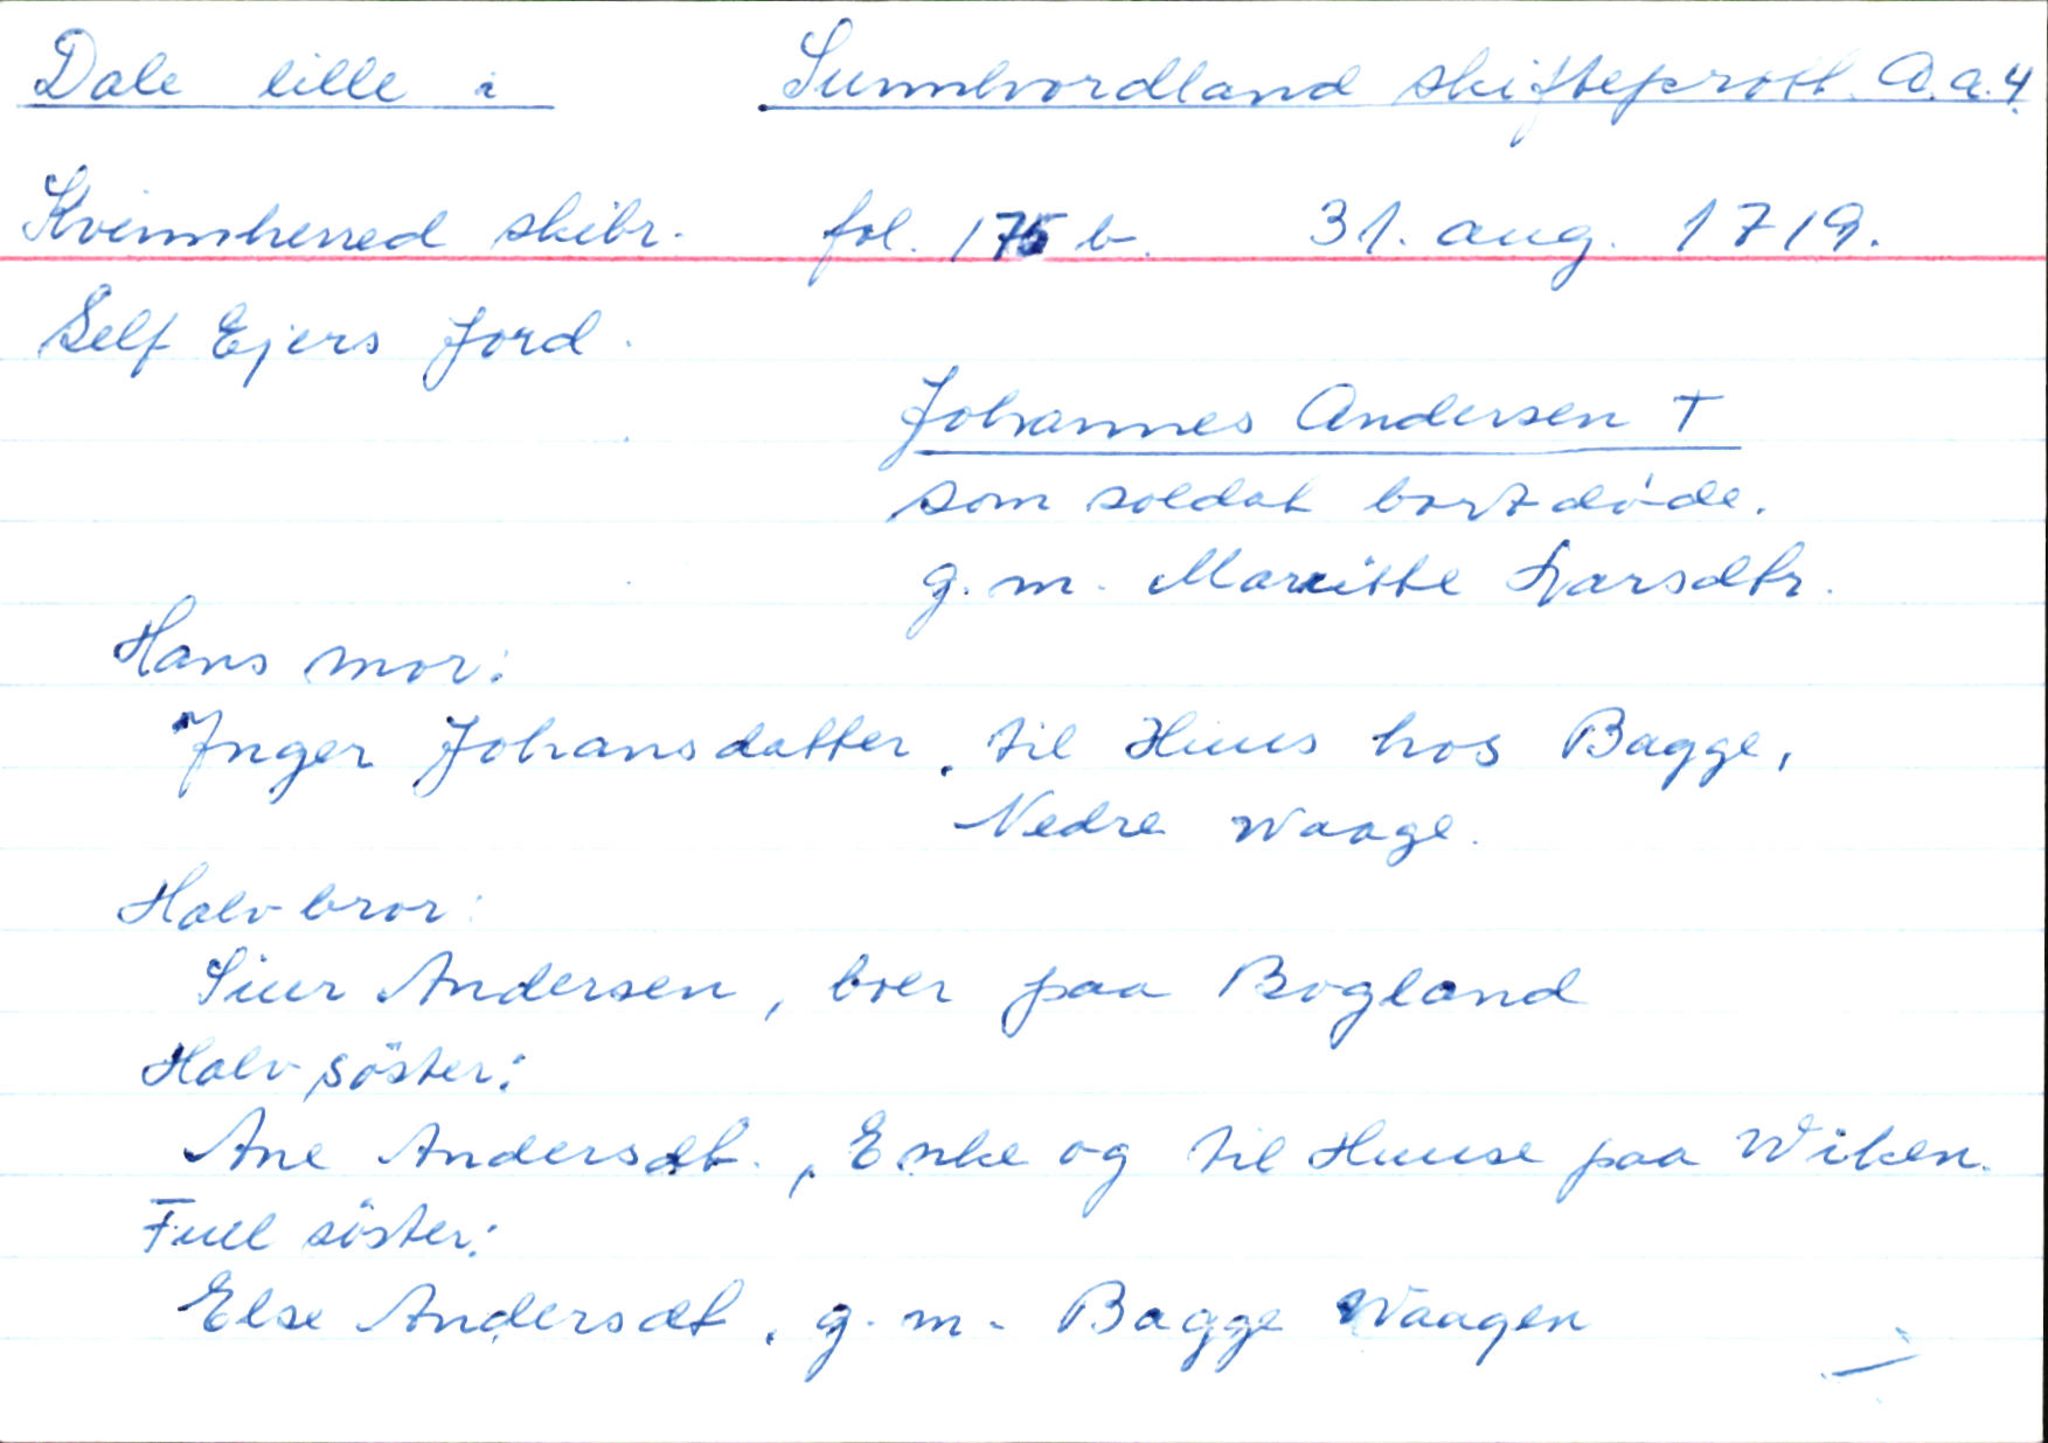 Dale lille i Sunnhordland skifteprott. A.a.4.
Kvinnherred skibr. fol. 175 b. 31. aug. 1719.
Self Ejers Jord.
Johannes Andersen †
som soldat bortdøde.
g. m. Maritte Larsdtr.
Hans mor:
Inger Johansdatter, til Huus hos Bagge,
Nedre Waage.
Halvbror:
Siur Andersen, boer paa Bogland
Halv söster:
Ane Andersdt., Enke og til Huuse paa Wiken.
Full söster:
Else Andersdt, g. m. Bagge Waagen